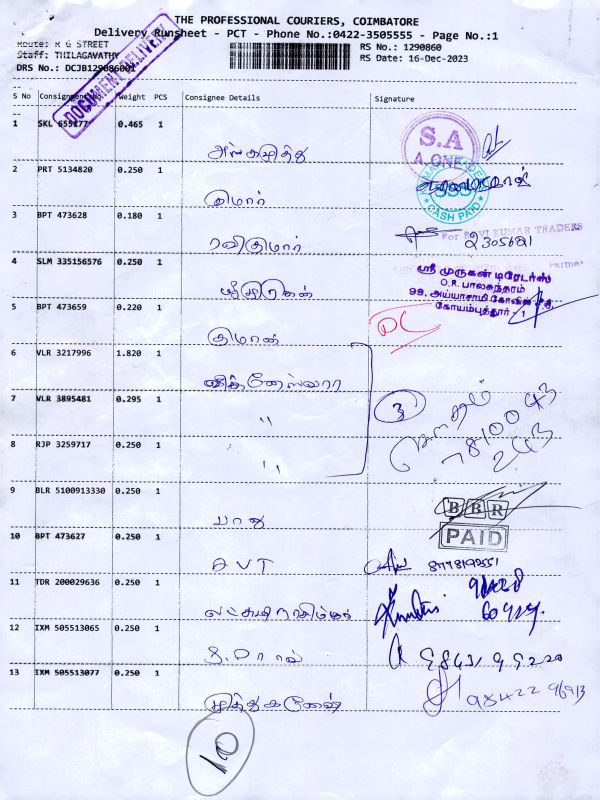 THE PROFESSIONAL COURIERS, COIMBATORE
Delivery Runsheet - PCT - Phone No.:0422-3505555 - Page No.:1
Route: R G STREET
RS No.: 1290860
Staff: THILAGAVATHY
RS Date: 16-Dec-2023
DRS No.: DCJB129086001
DOCUMENT DELIVERY
S No Consignment No Weight PCS Consignee Details Signature
1 SKL 655177 0.465 1
S.A
A.ONE
2 PRT 5134820 0.250 1 குமார்
CASH PAID
3 BPT 473628 0.180 1 ரவிகுமார்
For RAVI KUMAR TRADERS
2305681
Partner
4 SLM 335156576 0.250 1 ஸ்ரீமுருகன்
ஸ்ரீ முருகன் டிரேடர்ஸ்
O.R. பாலசுந்தரம்
99, அய்யாசாமி கோவில் வீதி
கோயம்புத்தூர் - 1
5 BPT 473659 0.220 1 குமரன்
DC
6 VLR 3217996 1.820 1 விக்னேஸ்வரா
7 VLR 3895481 0.295 1 "
3
கௌதம்
7810043
243
8 RJP 3259717 0.250 1 "
9 BLR 5100913330 0.250 1 பாபு
BBR
PAID
10 BPT 473627 0.250 1 AVT
11 TDR 200029636 0.250 1
12 IXM 505513065 0.250 1
13 IXM 505513077 0.250 1 முத்துகணேஷ்
98422 96913
10